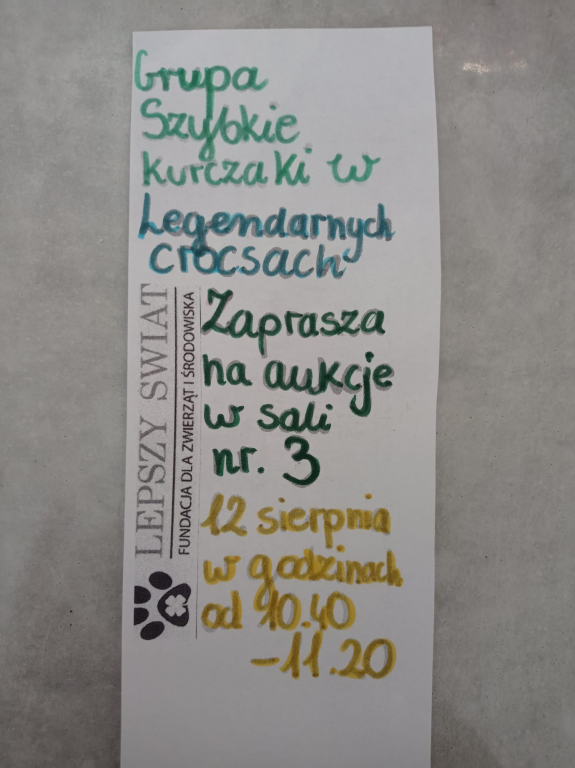 Grupa
Szybkie
kurczaki w
Legendarnych
crocsach
Zaprasza
na aukcje
w sali
nr. 3
12 sierpnia
w godzinach
od 10.40
-11.20
LEPSZY ŚWIAT
FUNDACJA DLA ZWIERZĄT I ŚRODOWISKA